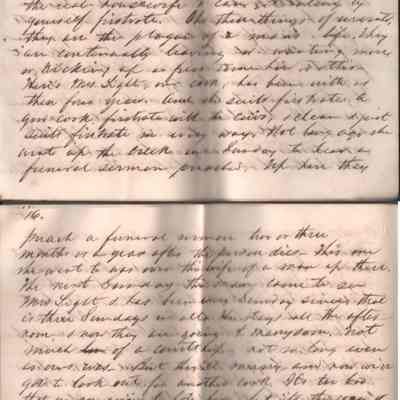 the real housewife & can
yourself firstrate. Oh these things of servants
they are the plague of a mans life. They
are continually leaving or wanting more
or kicking up a fuss some how or other.
Here's Mrs Light, our cook, has been with us
then four years. And she suits firstrate. A
good cook, firstrate with the cows, & clean & just
suits firstrate in every way. Not long ago she
went up the creek on a Sunday to hear a
funeral sermon preached. Up here they
16.
preach a funeral sermon two or three
months or a year after the person dies. This one
she went to was over the wife of a man up there.
The next Sunday the man came to see
Mrs Light & has been every Sunday since, that
is three Sundays in all. He stays all the after
noon, & now they are going to marry soon. Not
much of a courtship, not so long even
as ours was. But she'll marry and now we've
got to look out for another cook. It's too bad.